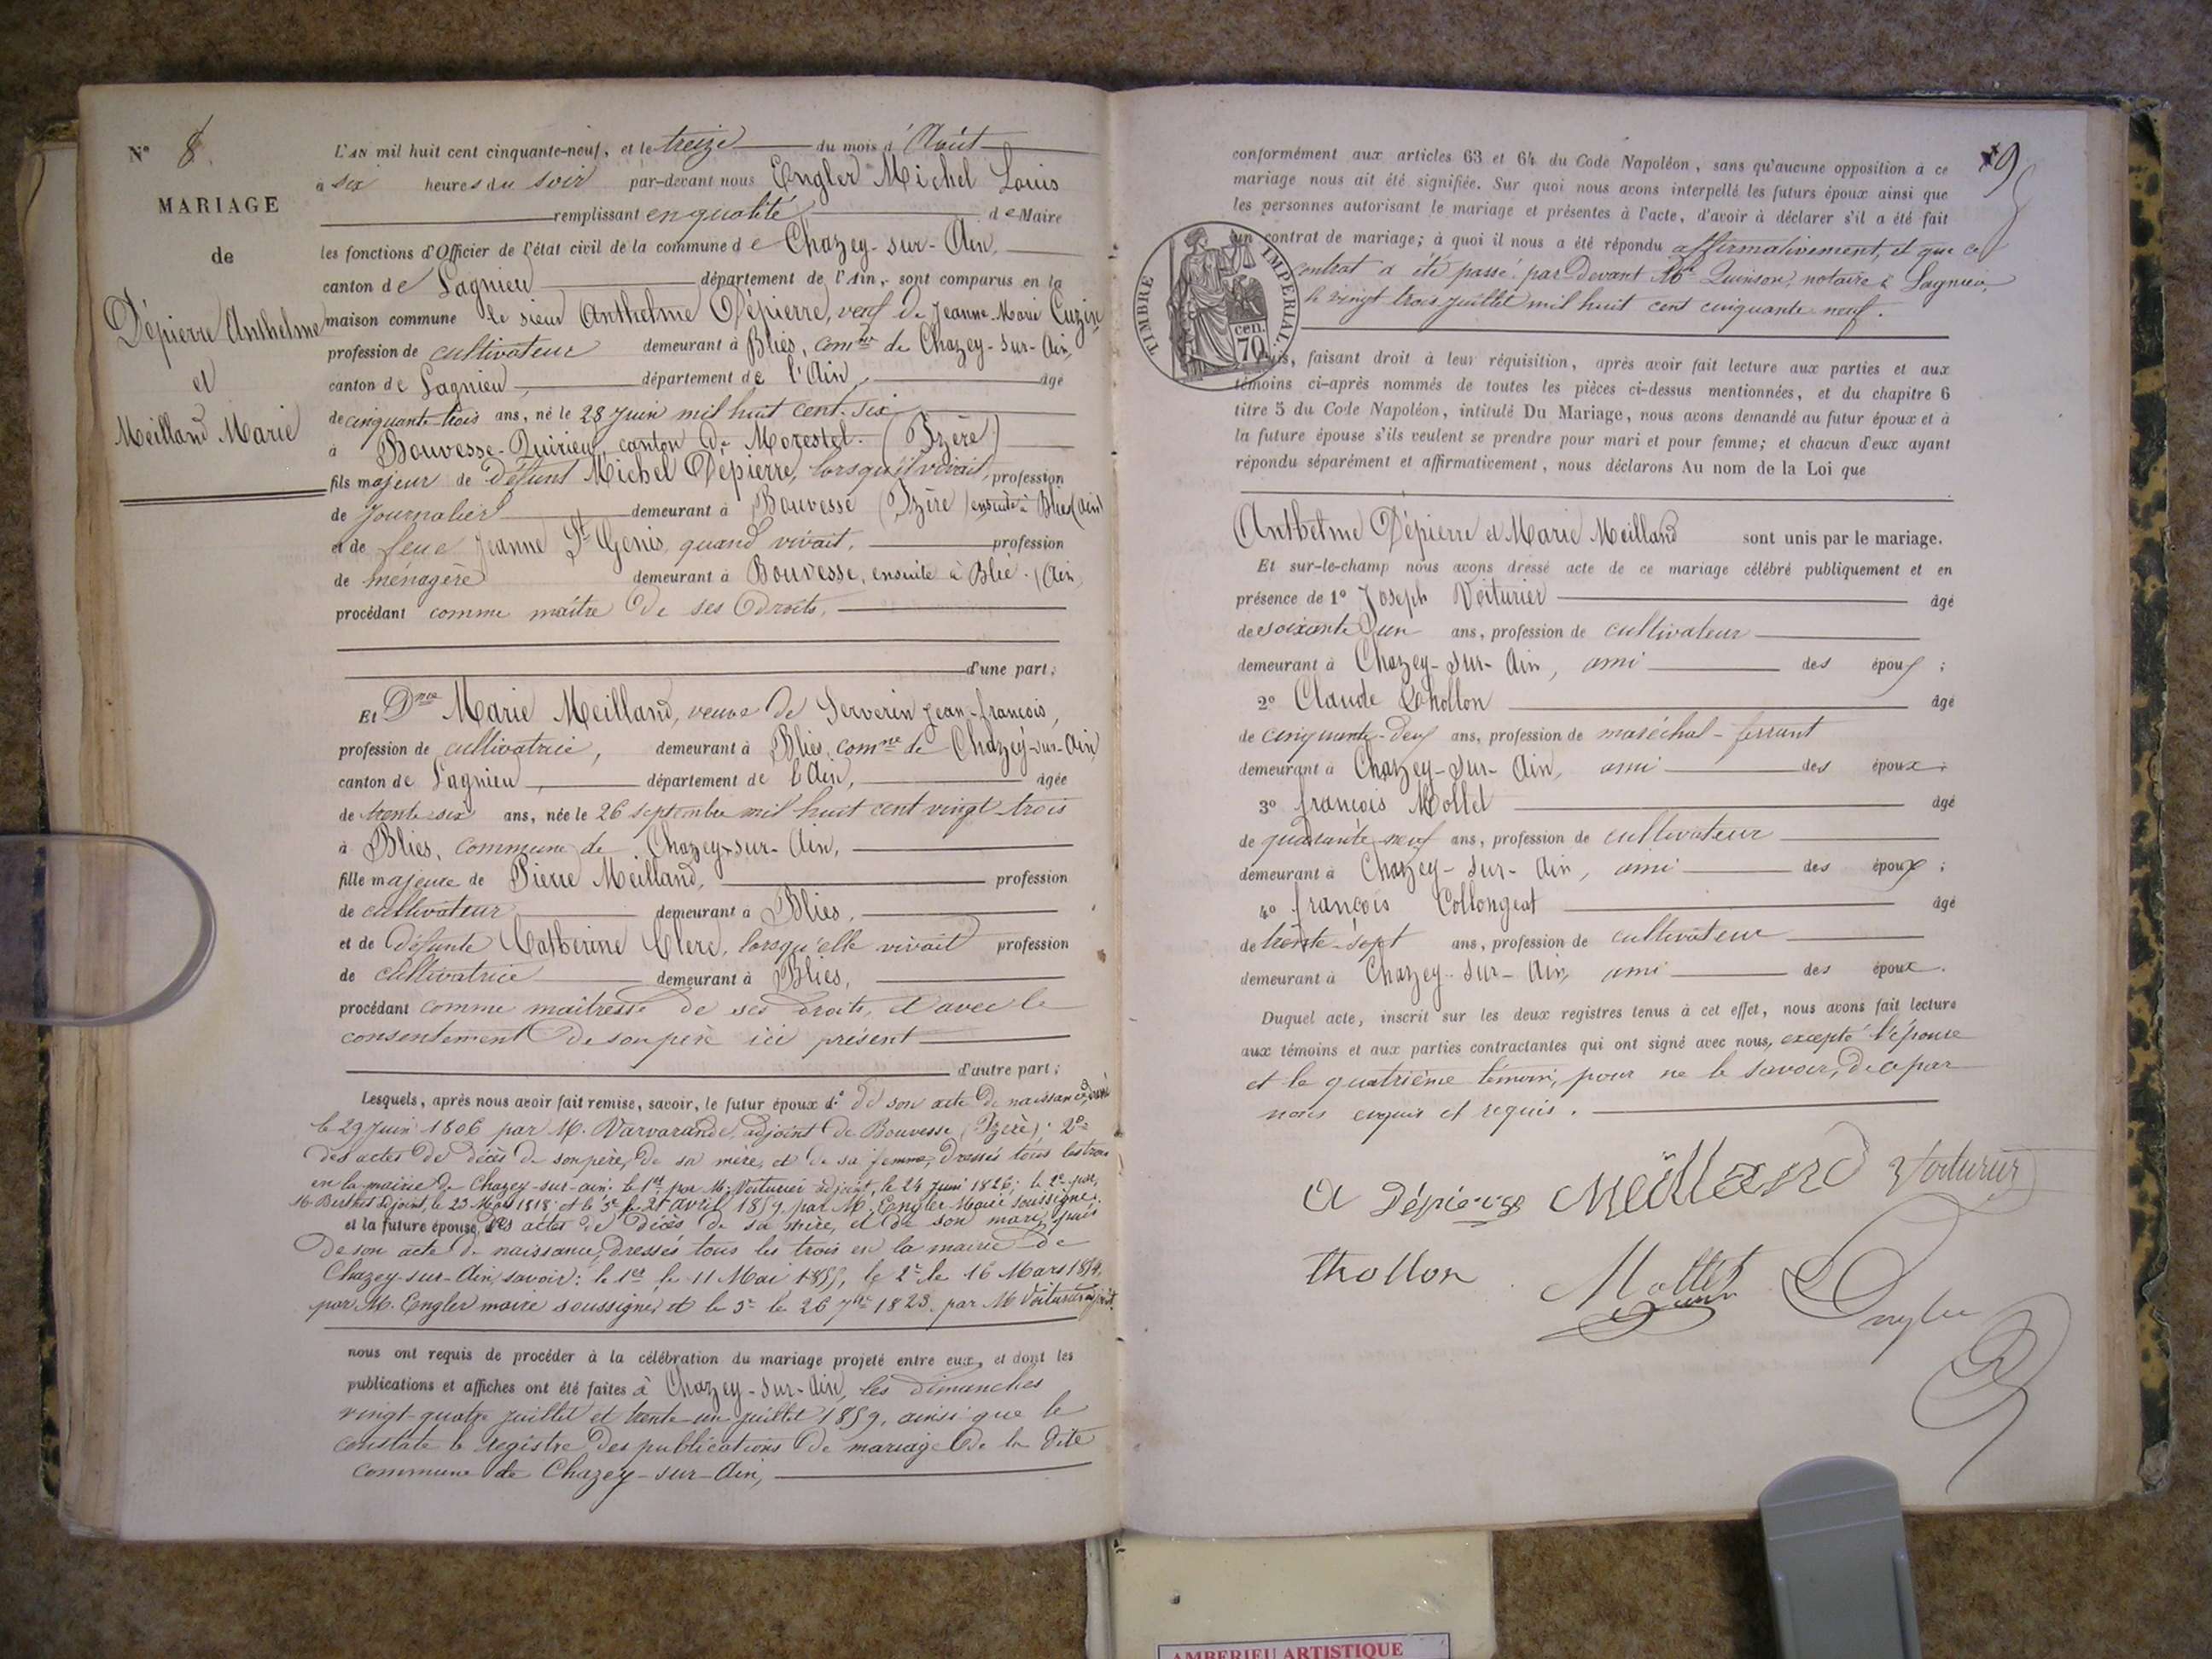 N° 8.
MARIAGE
de
Dépierre Anthelme
et
Meilland Marie
L'AN mil huit cent cinquante-neuf, et le treize du mois d'Août
à six heures du soir par-devant nous Engler Michel Louis
remplissant en qualité de Maire
les fonctions d'Officier de l'état civil de la commune de Chazey-sur-Ain,
canton de Lagnieu département de l'Ain, sont comparus en la
maison commune le sieur Anthelme Dépierre, veuf de Jeanne-Marie Cuzin,
profession de cultivateur demeurant à Blies, comne de Chazey-sur-Ain,
canton de Lagnieu, département de l'Ain, âgé
de cinquante-trois ans, né le 28 Juin mil huit cent-six
à Bouvesse-Quirieu, canton de Morestel. (Izère)
fils majeur de défunt Michel Dépierre, lorsqu'il vivait, profession
de Journalier demeurant à Bouvesse (Izère) ensuite à Blies (Ain)
et de feue Jeanne St Genis, quand vivait, profession
de ménagère demeurant à Bouvesse, ensuite à Blie. (Ain,
procédant comme maître de ses droits,
d'une part;
Et Dme Marie Meilland, veuve de Serverin Jean-françois,
profession de cultivatrice, demeurant à Blies, comne de Chazey-sur-Ain,
canton de Lagnieu, département de l'Ain, âgée
de trente-six ans, née le 26 septembre mil huit cent vingt-trois
à Blies, commune de Chazey-sur-Ain,
fille majeure de Pierre Meilland, profession
de cultivateur demeurant à Blies,
et de défunte Catherine Clerc, lorsqu'elle vivait profession
de cultivatrice demeurant à Blies,
procédant comme maîtresse de ses droits, et avec le
consentement de son père ici présent
d'autre part;
Lesquels, après nous avoir fait remise, savoir, le futur époux 1° de son acte de naissance, dressé
le 29 Juin 1806 par M. Varvarande, adjoint de Bouvesse (Izère); 2°
des actes de décès de son père, de sa mère, et de sa femme, dressés tous les trois
en la mairie de Chazey-sur-ain: le 1er par M. Voiturier adjoint, le 24 Juin 1826; le 2e par
M. Berthet adjoint, le 23 Mars 1818; et le 3e le 21 avril 1859 par M. Engler Maire soussigné.
et la future épouse, des actes de décès de sa mère, et de son mari, puis
de son acte de naissance, dressés tous les trois en la mairie de
Chazey-sur-Ain, savoir: le 1er le 11 Mai 1855, le 2e le 16 Mars 1854,
par M. Engler maire soussigné, et le 3e le 26 7bre 1823. par M Voiturier adjoint.
nous ont requis de procéder à la célébration du mariage projeté entre eux, et dont les
publications et affiches ont été faites à Chazey-sur-Ain, les dimanches
vingt-quatre juillet et trente-un juillet 1859, ainsi que le
constate le registre des publications de mariage de la dite
commune de Chazey-sur-Ain,
19
conformément aux articles 63 et 64 du Code Napoléon, sans qu'aucune opposition à ce
mariage nous ait été signifiée. Sur quoi nous avons interpellé les futurs époux ainsi que
les personnes autorisant le mariage et présentes à l'acte, d'avoir à déclarer s'il a été fait
un contrat de mariage; à quoi il nous a été répondu affirmativement, et que ce
contrat a été passé par devant Me Quinson, notaire à Lagnieu,
le vingt trois juillet mil huit cent cinquante neuf.
TIMBRE IMPERIAL.
70 cen.
Puis, faisant droit à leur réquisition, après avoir fait lecture aux parties et aux
témoins ci-après nommés de toutes les pièces ci-dessus mentionnées, et du chapitre 6
titre 5 du Code Napoléon, intitulé Du Mariage, nous avons demandé au futur époux et à
la future épouse s'ils veulent se prendre pour mari et pour femme; et chacun d'eux ayant
répondu séparément et affirmativement, nous déclarons Au nom de la Loi que
Anthelme Dépierre et Marie Meilland sont unis par le mariage.
Et sur-le-champ nous avons dressé acte de ce mariage célébré publiquement et en
présence de 1° Joseph Voiturier âgé
de soixante-un ans, profession de cultivateur
demeurant à Chazey-sur-Ain, ami des époux;
2° Claude Thollon âgé
de cinquante-deux ans, profession de maréchal-ferrant
demeurant à Chazey-sur-Ain, ami des époux;
3° françois Mollet âgé
de quarante-neuf ans, profession de cultivateur
demeurant à Chazey-sur-Ain, ami des époux;
4° françois Collongeat âgé
de trente-sept ans, profession de cultivateur
demeurant à Chazey-sur-Ain, ami des époux.
Duquel acte, inscrit sur les deux registres tenus à cet effet, nous avons fait lecture
aux témoins et aux parties contractantes qui ont signé avec nous, excepté l'épouse
et le quatrième témoin, pour ne le savoir, de ce par
nous enquis et requis.
A Dépierre Meilland Voiturier
thollon Mollet Engler
AMBERIEU ARTISTIQUE